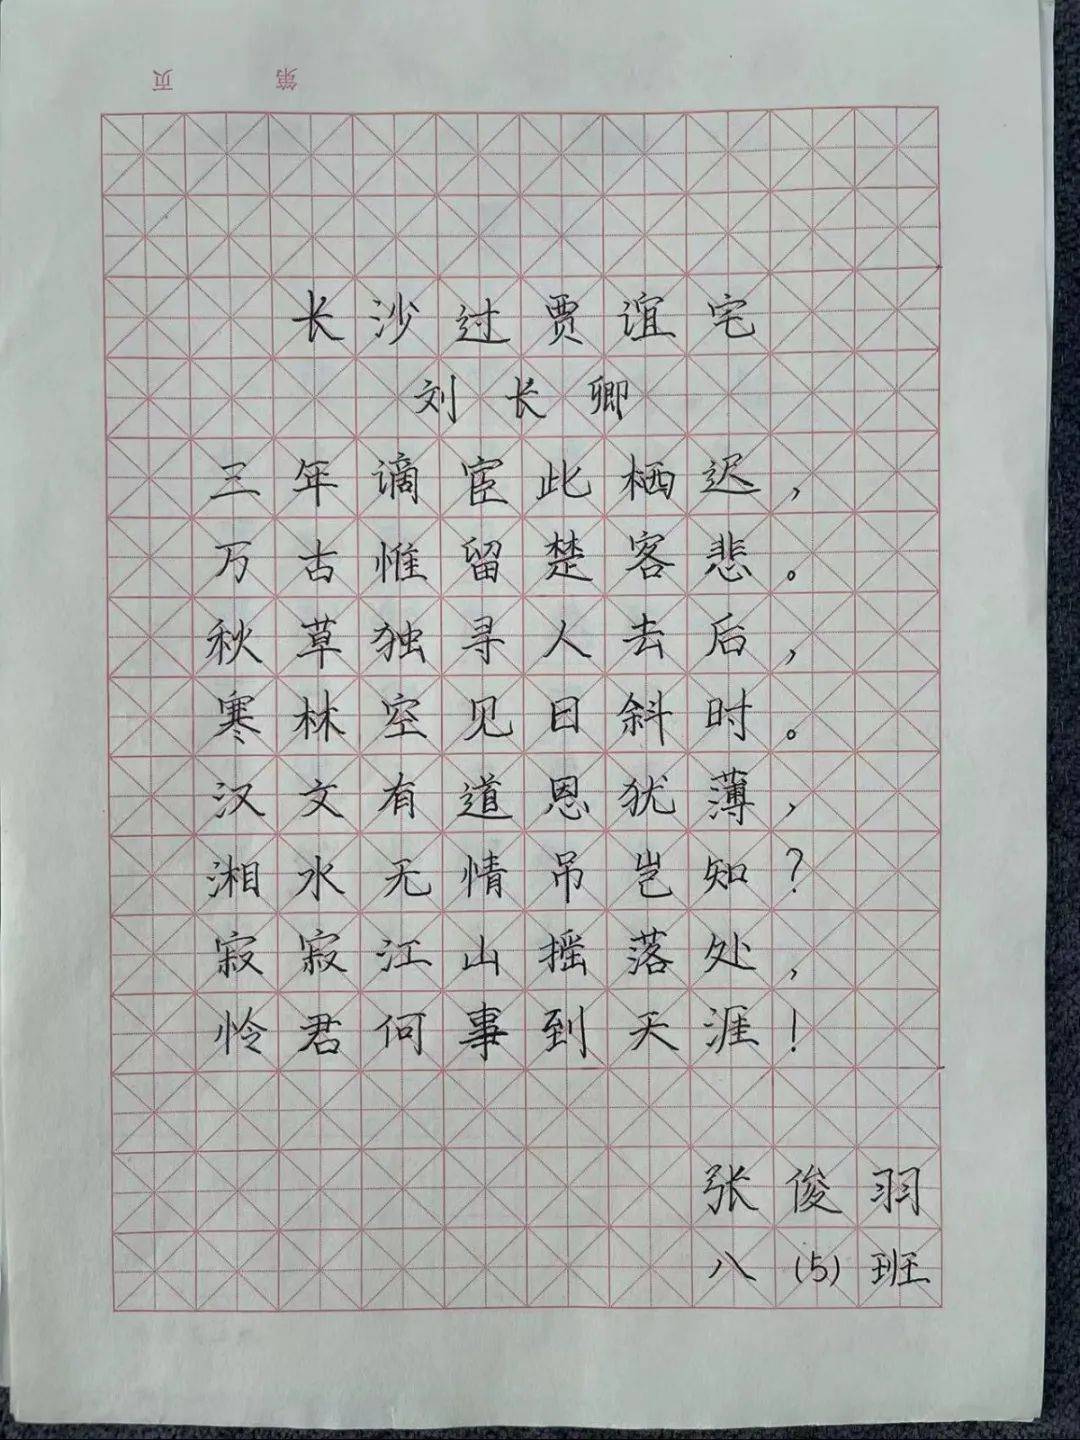 页 第
长沙过贾谊宅
刘长卿
三年谪宦此栖迟，
万古惟留楚客悲。
秋草独寻人去后，
寒林空见日斜时。
汉文有道恩犹薄，
湘水无情吊岂知？
寂寂江山摇落处，
怜君何事到天涯！
张俊羽
八（5）班